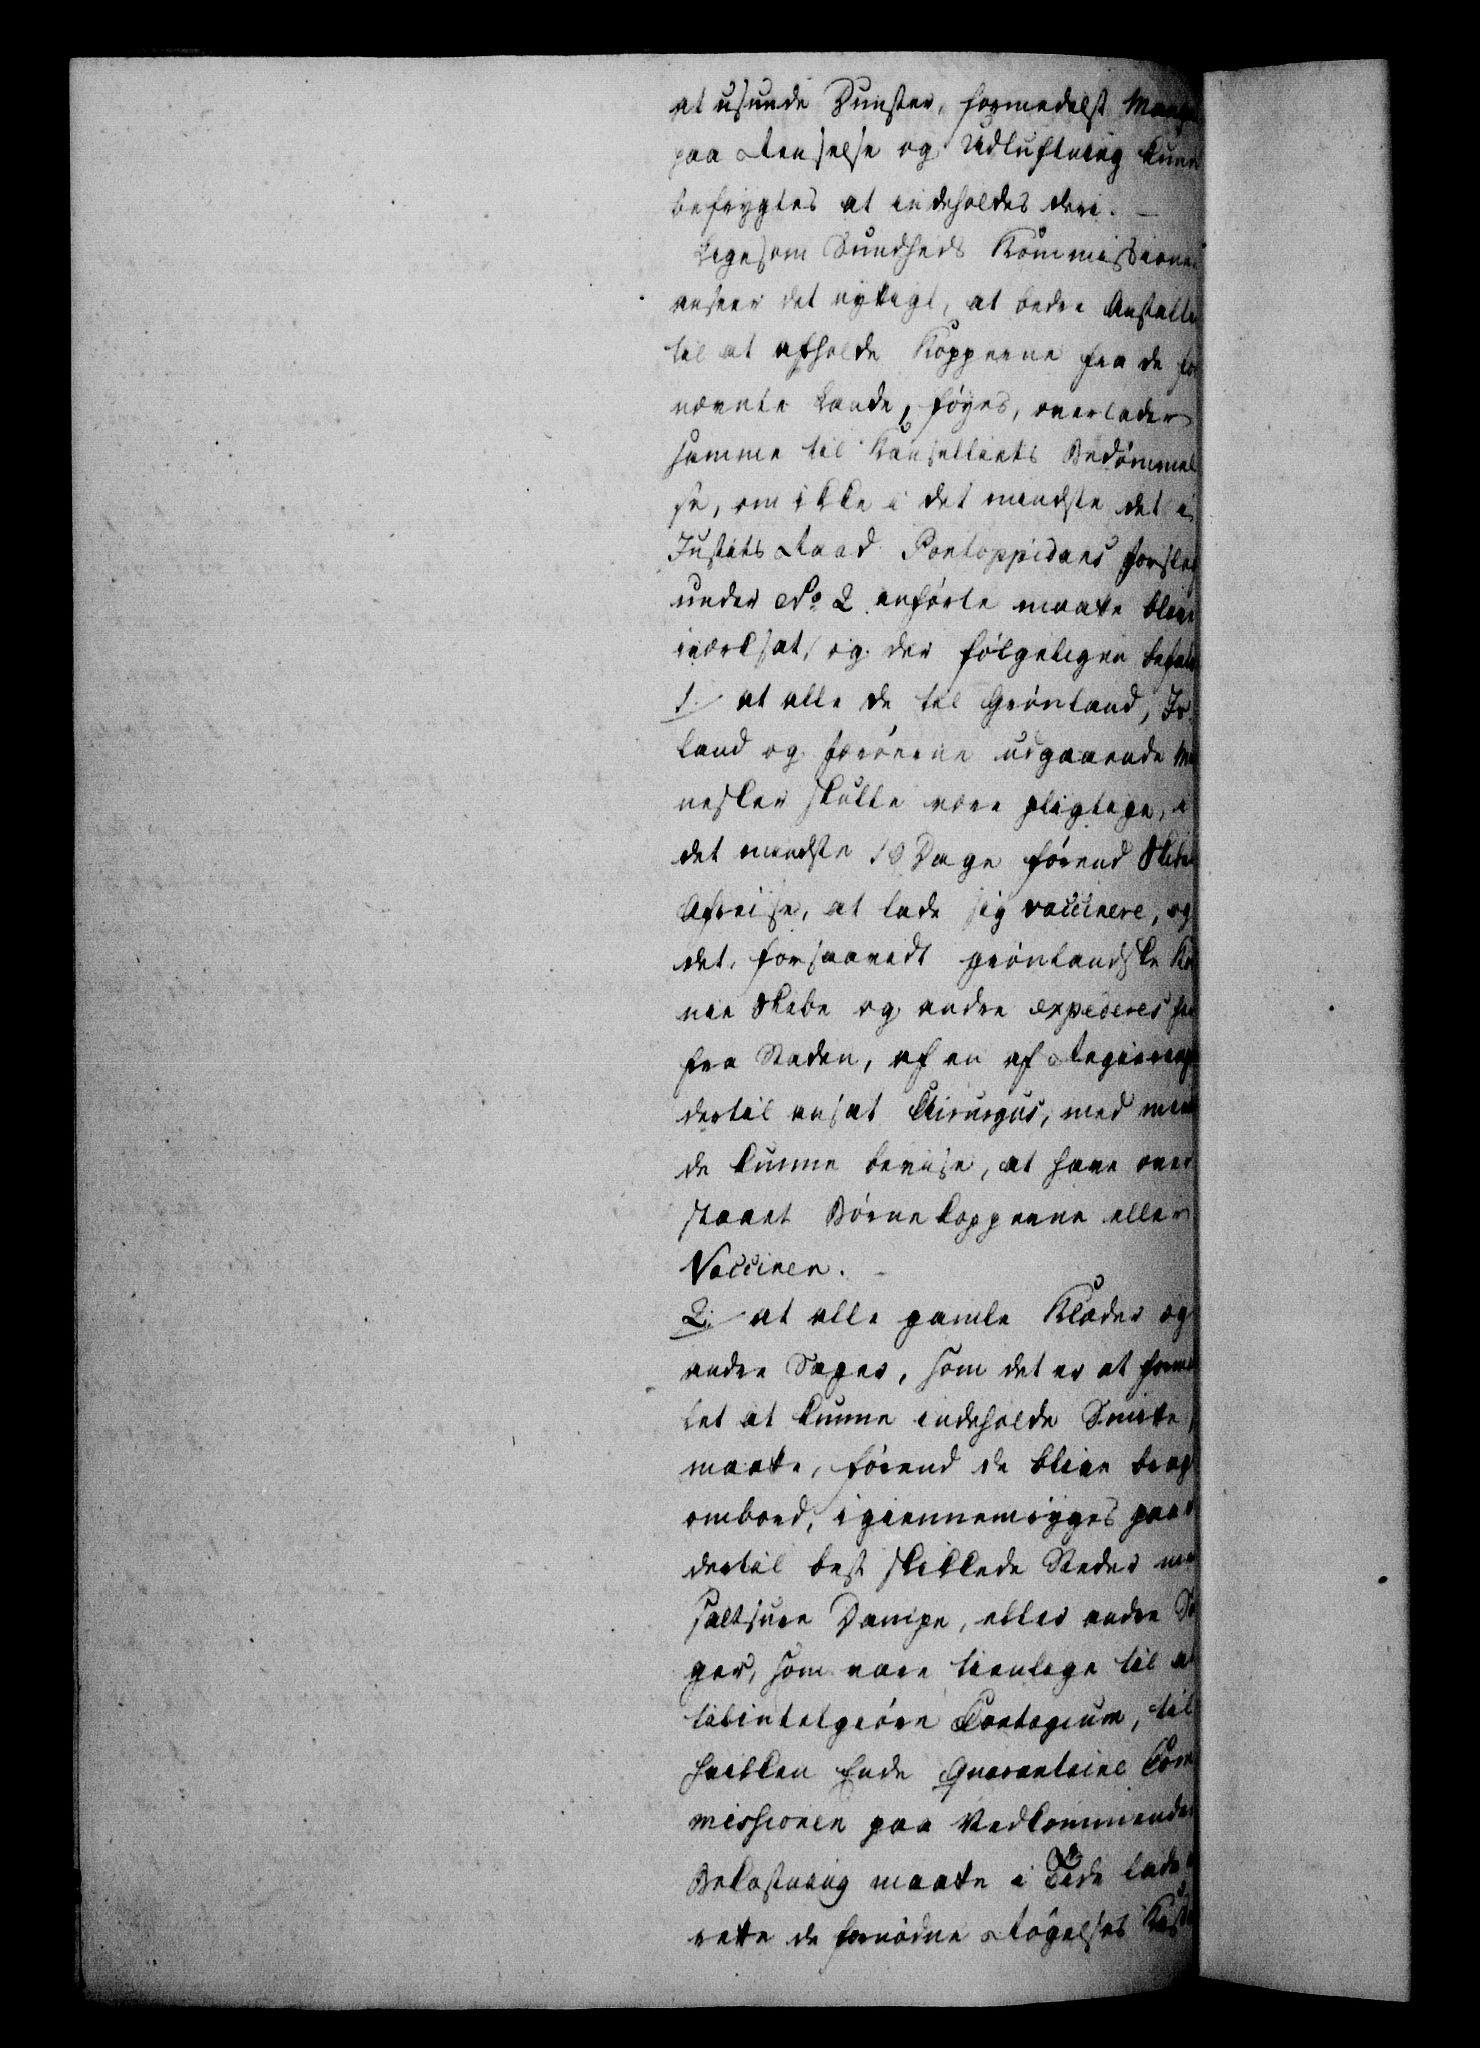 at usunde Dunster, formedelst Mang
paa Renselse og Udluftning kun
befrygtes at indeholdes deri. —
Ligesom Sundheds Kommissionen
anseer det nyttigt, at bedre Anstalte
til at afholde Kopperne fra de for
nævnte Lande, føyes, overlader
samme til Kanselliets Bedømmel
se, om ikke i det mindste det i
Justits Raad Pontoppidans Forslag
under No 2 anførte maatte blive
iværksat, og der følgeligen befal
1. at alle de til Grønland, Is
land og Færøerne udgaaende Me
nesker skulle være pligtige, i
det mindste 10 Dage førend Skibe
Afreise, at lade sig vaccinere, og
det, forsaavidt grønlandske Ko
nie Skibe og andre expederes her
fra Staden, af en af Regiering
dertil ansat Chirurgus, med mind
de kunne bevise, at have over
staaet Børnekopperne eller
Vaccinen. —
2. at alle gamle Klæder og
andre Sager, som det er at formo
det at kunne indeholde Smitte,
maatte, førend de blive brag
ombord, igiennemryges paa
dertil best skikkede Steder me
saltsure Dampe, eller andre Sa
ger, som vare tienlige til at
tilintetgiøre Contagium, til
hvilken Ende Quarantaine Com
missionen paa Vedkommendes
Bekostning maatte i Tide lade
rette de fornødne Røgelses Kas